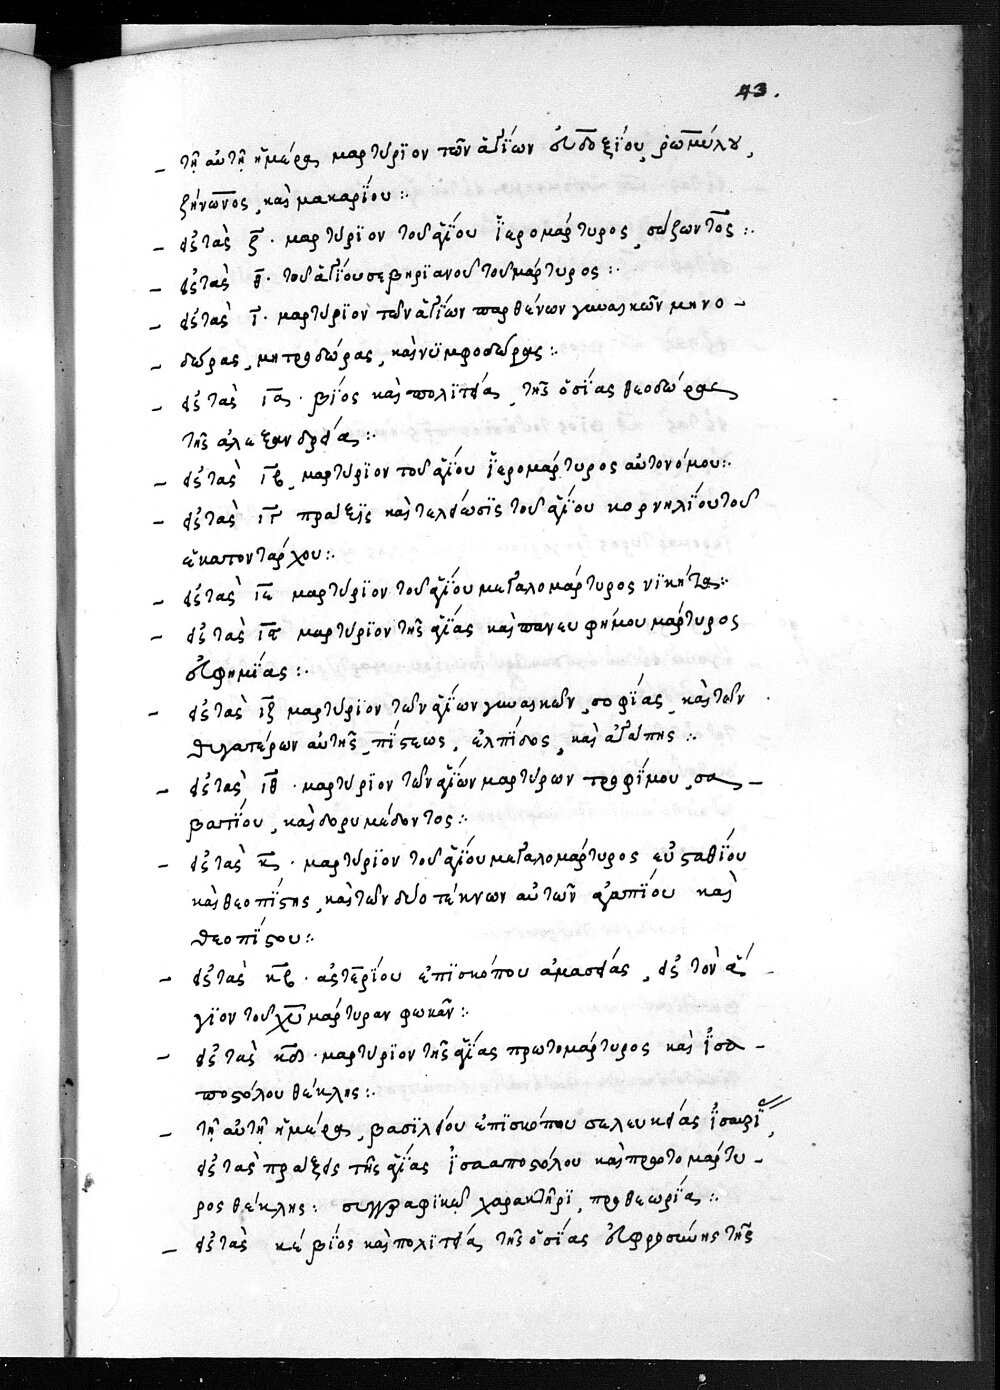 43.
– τῆ αὐτῆ ἡμέρας μαρτύρϊον τῶν ἁγΐων εὐδοξΐου, ῥωμύλου,
ζήνωνος, καὶ μακαρΐου :·
– εἰς τὰς ζ̅ · μαρτύρϊον τοῦ ἁγΐου ἱερομάρτυρος, σώζωντος :·
– εἰς τὰς θ̅ · τοῦ ἁγΐου σεβηρϊανοῦ τοῦ μάρτυρος :·
– εἰς τὰς ι̅ · μαρτύρϊον τῶν ἁγΐων παρθένων γυναικῶν μηνο –
– δώρας, μητροδώρας, καὶ νϋμφοδώρας :·
– εἰς τὰς ια̅ · βΐος καὶ πολϊτεία, τῆς ὁσΐας θεοδώρας
τῆς ἀλεξανδρείας :·
– εἰς τὰς ιβ̅, μαρτύρϊον τοῦ ἁγΐου ἱερομάρτυρος αὐτονόμου :·
– εἰς τὰς ιγ̅ πράξεϊς καὶ τελείωσϊς τοῦ ἁγΐου κορνηλΐου τοῦ
ἑκατοντάρχου :·
– εἰς τὰς ιε̅ μαρτύρϊον τοῦ ἁγΐου μεγαλομάρτυρος νϊκήτα :·
– εἰς τὰς ις̅ μαρτύρϊον τῆς ἁγΐας καὶ πανευφήμου μάρτυρος
εὐφημΐας :·
– εἰς τὰς ιζ̅ μαρτύρϊον τῶν ἁγΐων γυναικῶν, σοφΐας, καὶ τῶν
θυγατέρων αὐτῆς, πΐστεως, ἐλπΐδος, καὶ ἀγάπης :·
– εἰς τὰς ιθ̅ · μαρτύρϊον τῶν ἁγΐων μαρτύρων τροφΐμου, σα –
βατΐου, καὶ δορυμέδοντος :·
– εἰς τὰς κ̅, · μαρτύρϊον τοῦ ἁγΐου μεγαλομάρτυρος εὐσταθΐου
καὶ θεοπΐστης, καὶ τῶν δύο τέκνων αὐτῶν ἀγαπΐου καὶ
θεοπΐστου :·
– εἰς τὰς κβ̅ · ἀστερΐου ἐπϊσκόπου ἀμασείας, εἰς τὸν ἅ –
γϊον τοῦ χ̅υ̅ μάρτυραν φωκᾶν :·
– εἰς τὰς κδ̅ · μαρτύρϊον τῆς ἁγΐας πρωτομάρτυρος καὶ ἰσα –
ποστόλου θέκλης :·
– τῆ αὐτῆ ἡμέρας, βασϊλείου ἐπϊσκόπου σελευκείας ἰσαυρΐας,
εἰς τὰς πράξεις τῆς ἁγΐας ἰσααποστόλου καὶ πρωτομάρτυ –
ρος θέκλης : συγγραφϊκῶ χαρακτῆρϊ, προθεωρΐα :·
– εἰς τὰς κέ βΐος καὶ πολϊτεία τῆς ὁσΐας εὐφροσύνης τῆς